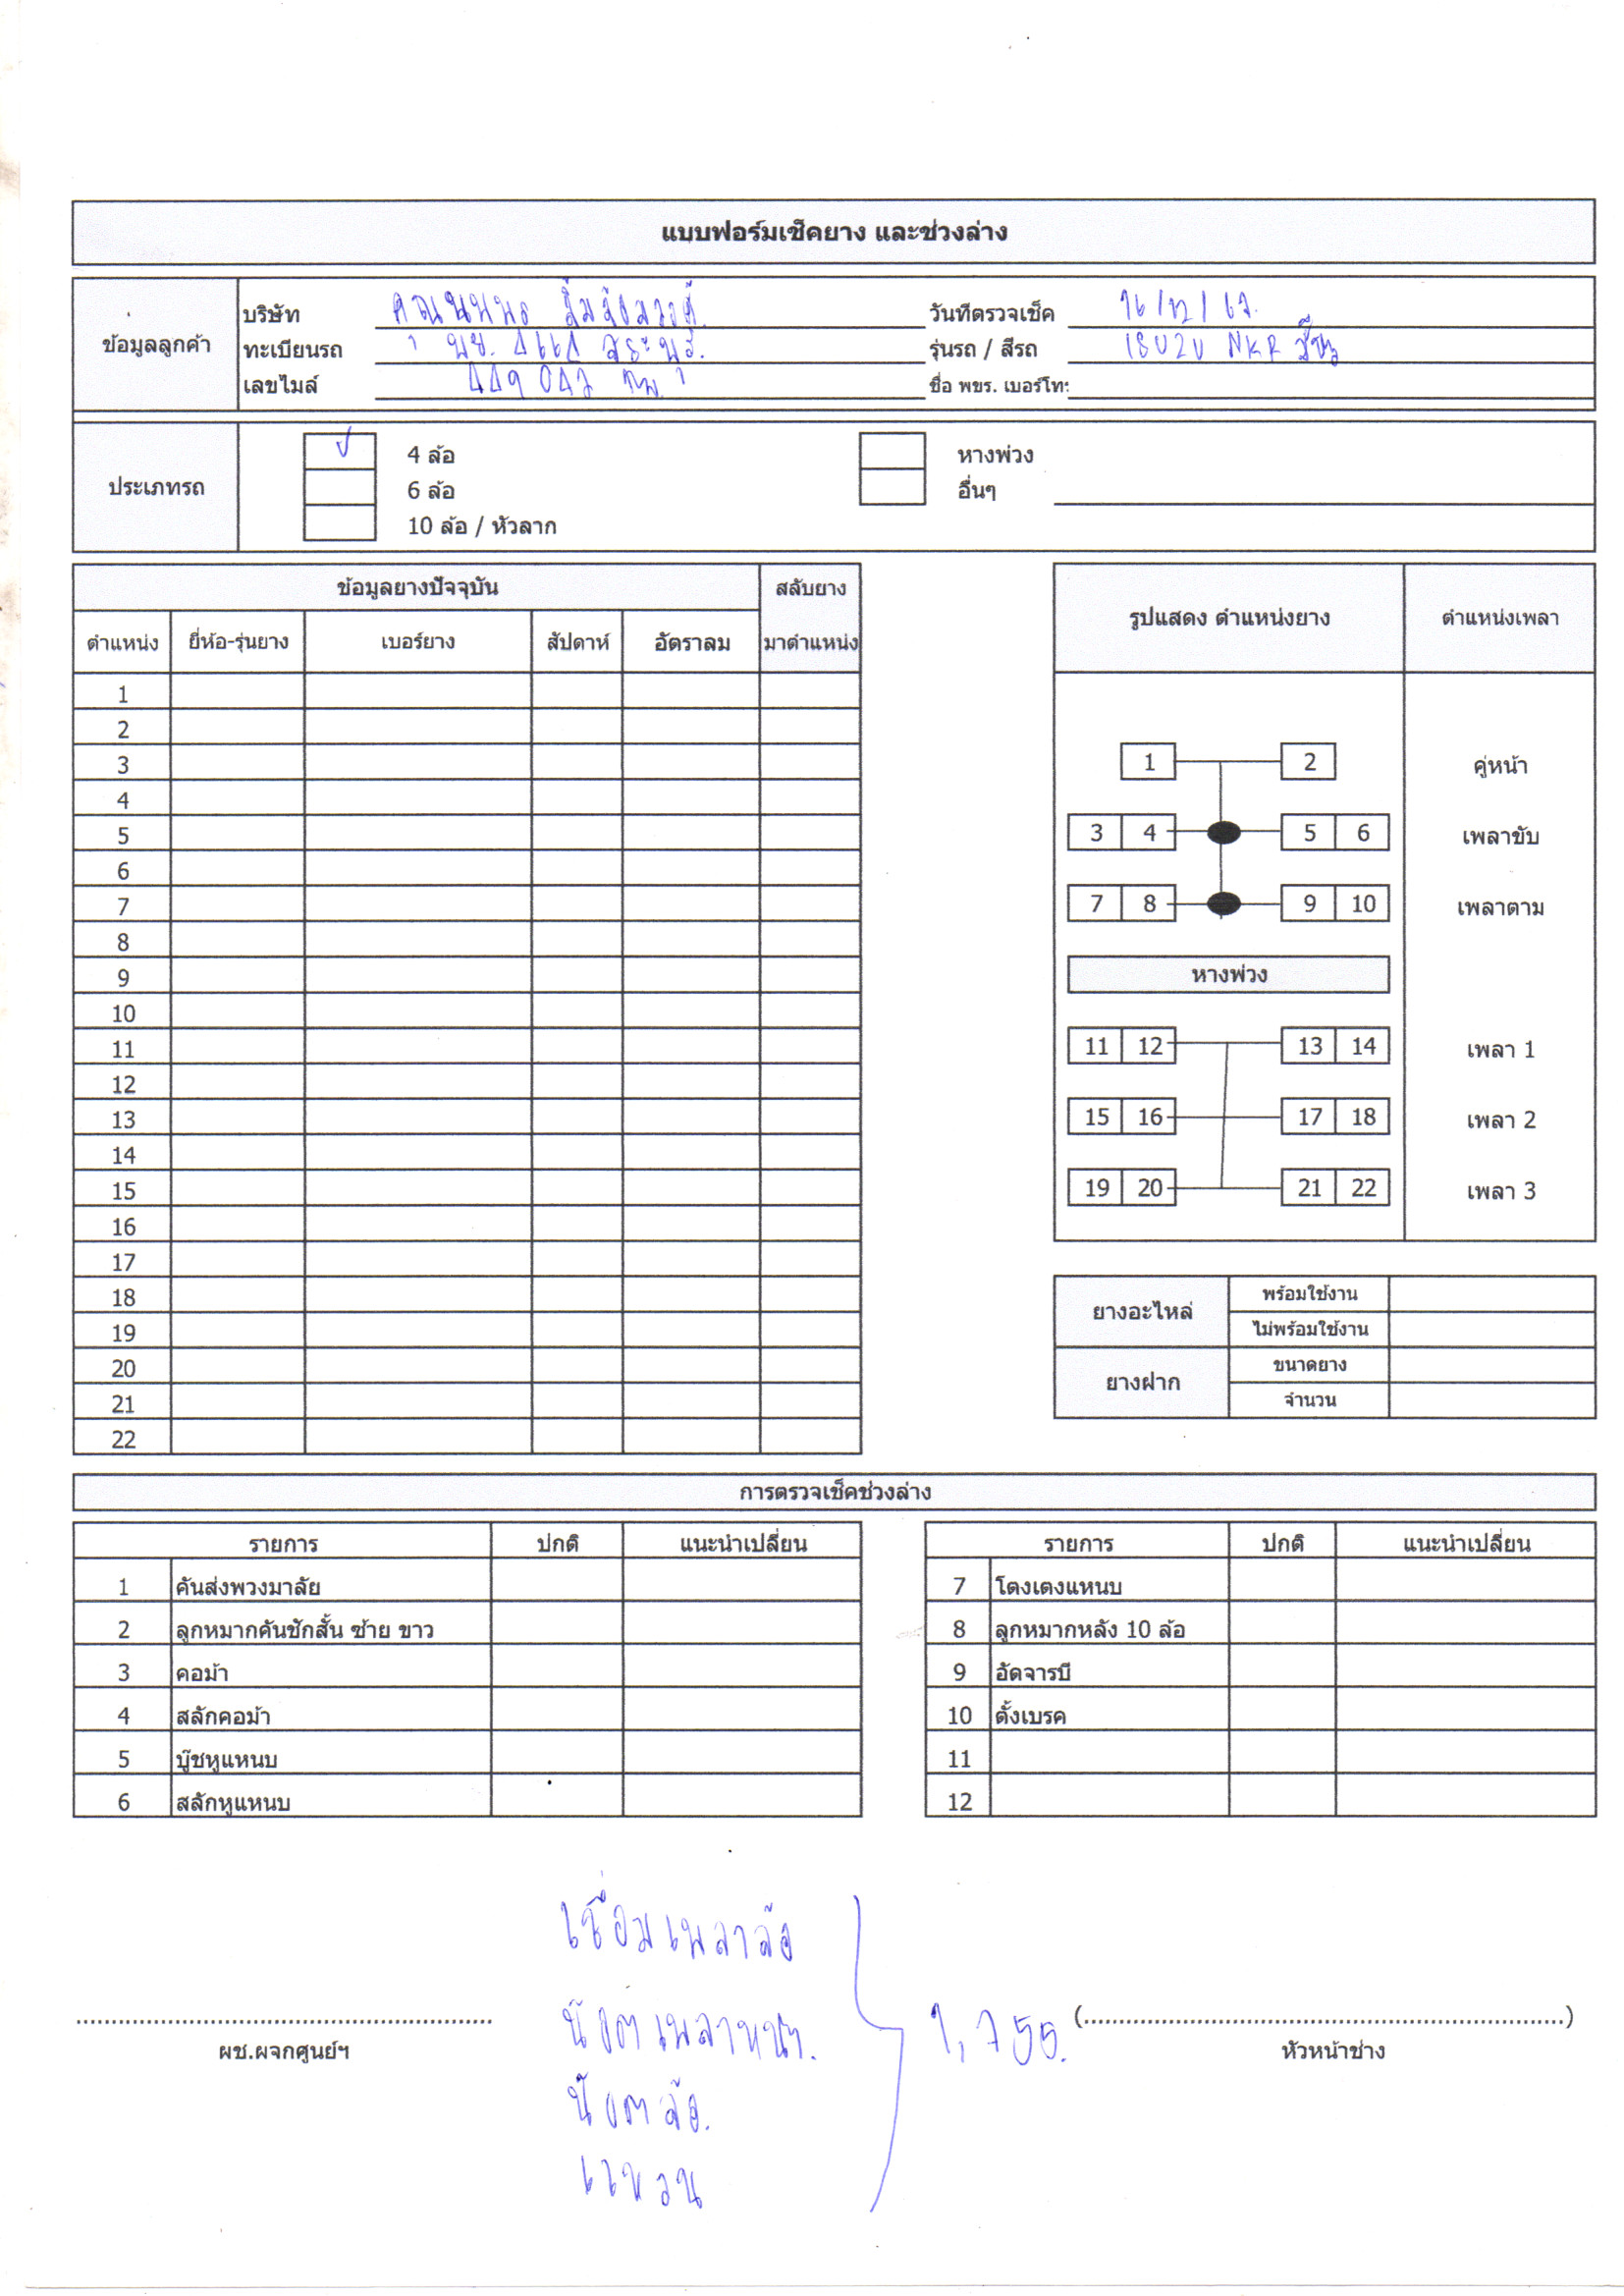 แบบฟอร์มเช็คยาง และช่วงล่าง
ข้อมูลลูกค้า
บริษัท คุณนพพร
วันที่ตรวจเช็ค 16/12/67.
ทะเบียนรถ สระบุรี.
รุ่นรถ / สีรถ ISUZU NKR
เลขไมล์ กม.
ชื่อ พขร. เบอร์โทร
ประเภทรถ
4 ล้อ หางพ่วง
6 ล้อ อื่นๆ
10 ล้อ / หัวลาก
ข้อมูลยางปัจจุบัน สลับยาง
ตำแหน่ง ยี่ห้อ-รุ่นยาง เบอร์ยาง สัปดาห์ อัตราลม มาตำแหน่ง
1
2
3
4
5
6
7
8
9
10
11
12
13
14
15
16
17
18
19
20
21
22
รูปแสดง ตำแหน่งยาง ตำแหน่งเพลา
1 2 คู่หน้า
3 4 5 6 เพลาขับ
7 8 9 10 เพลาตาม
หางพ่วง
11 12 13 14 เพลา 1
15 16 17 18 เพลา 2
19 20 21 22 เพลา 3
ยางอะไหล่ พร้อมใช้งาน
ไม่พร้อมใช้งาน
ยางฝาก ขนาดยาง
จำนวน
การตรวจเช็คช่วงล่าง
รายการ ปกติ แนะนำเปลี่ยน
1 คันส่งพวงมาลัย
2 ลูกหมากคันชักสั้น ซ้าย ขาว
3 คอม้า
4 สลักคอม้า
5 บู๊ชหูแหนบ
6 สลักหูแหนบ
รายการ ปกติ แนะนำเปลี่ยน
7 โตงเตงแหนบ
8 ลูกหมากหลัง 10 ล้อ
9 อัดจารบี
10 ตั้งเบรค
11
12
เชื่อมเพลาล้อ
น๊อตเพลาหน้า.
น๊อตล้อ.
แหวน
1,750.
ผช.ผจกศูนย์ฯ
(..............................)
หัวหน้าช่าง